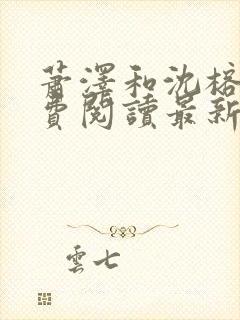 蕭澤和沈榕
費閱讀最新
雲七